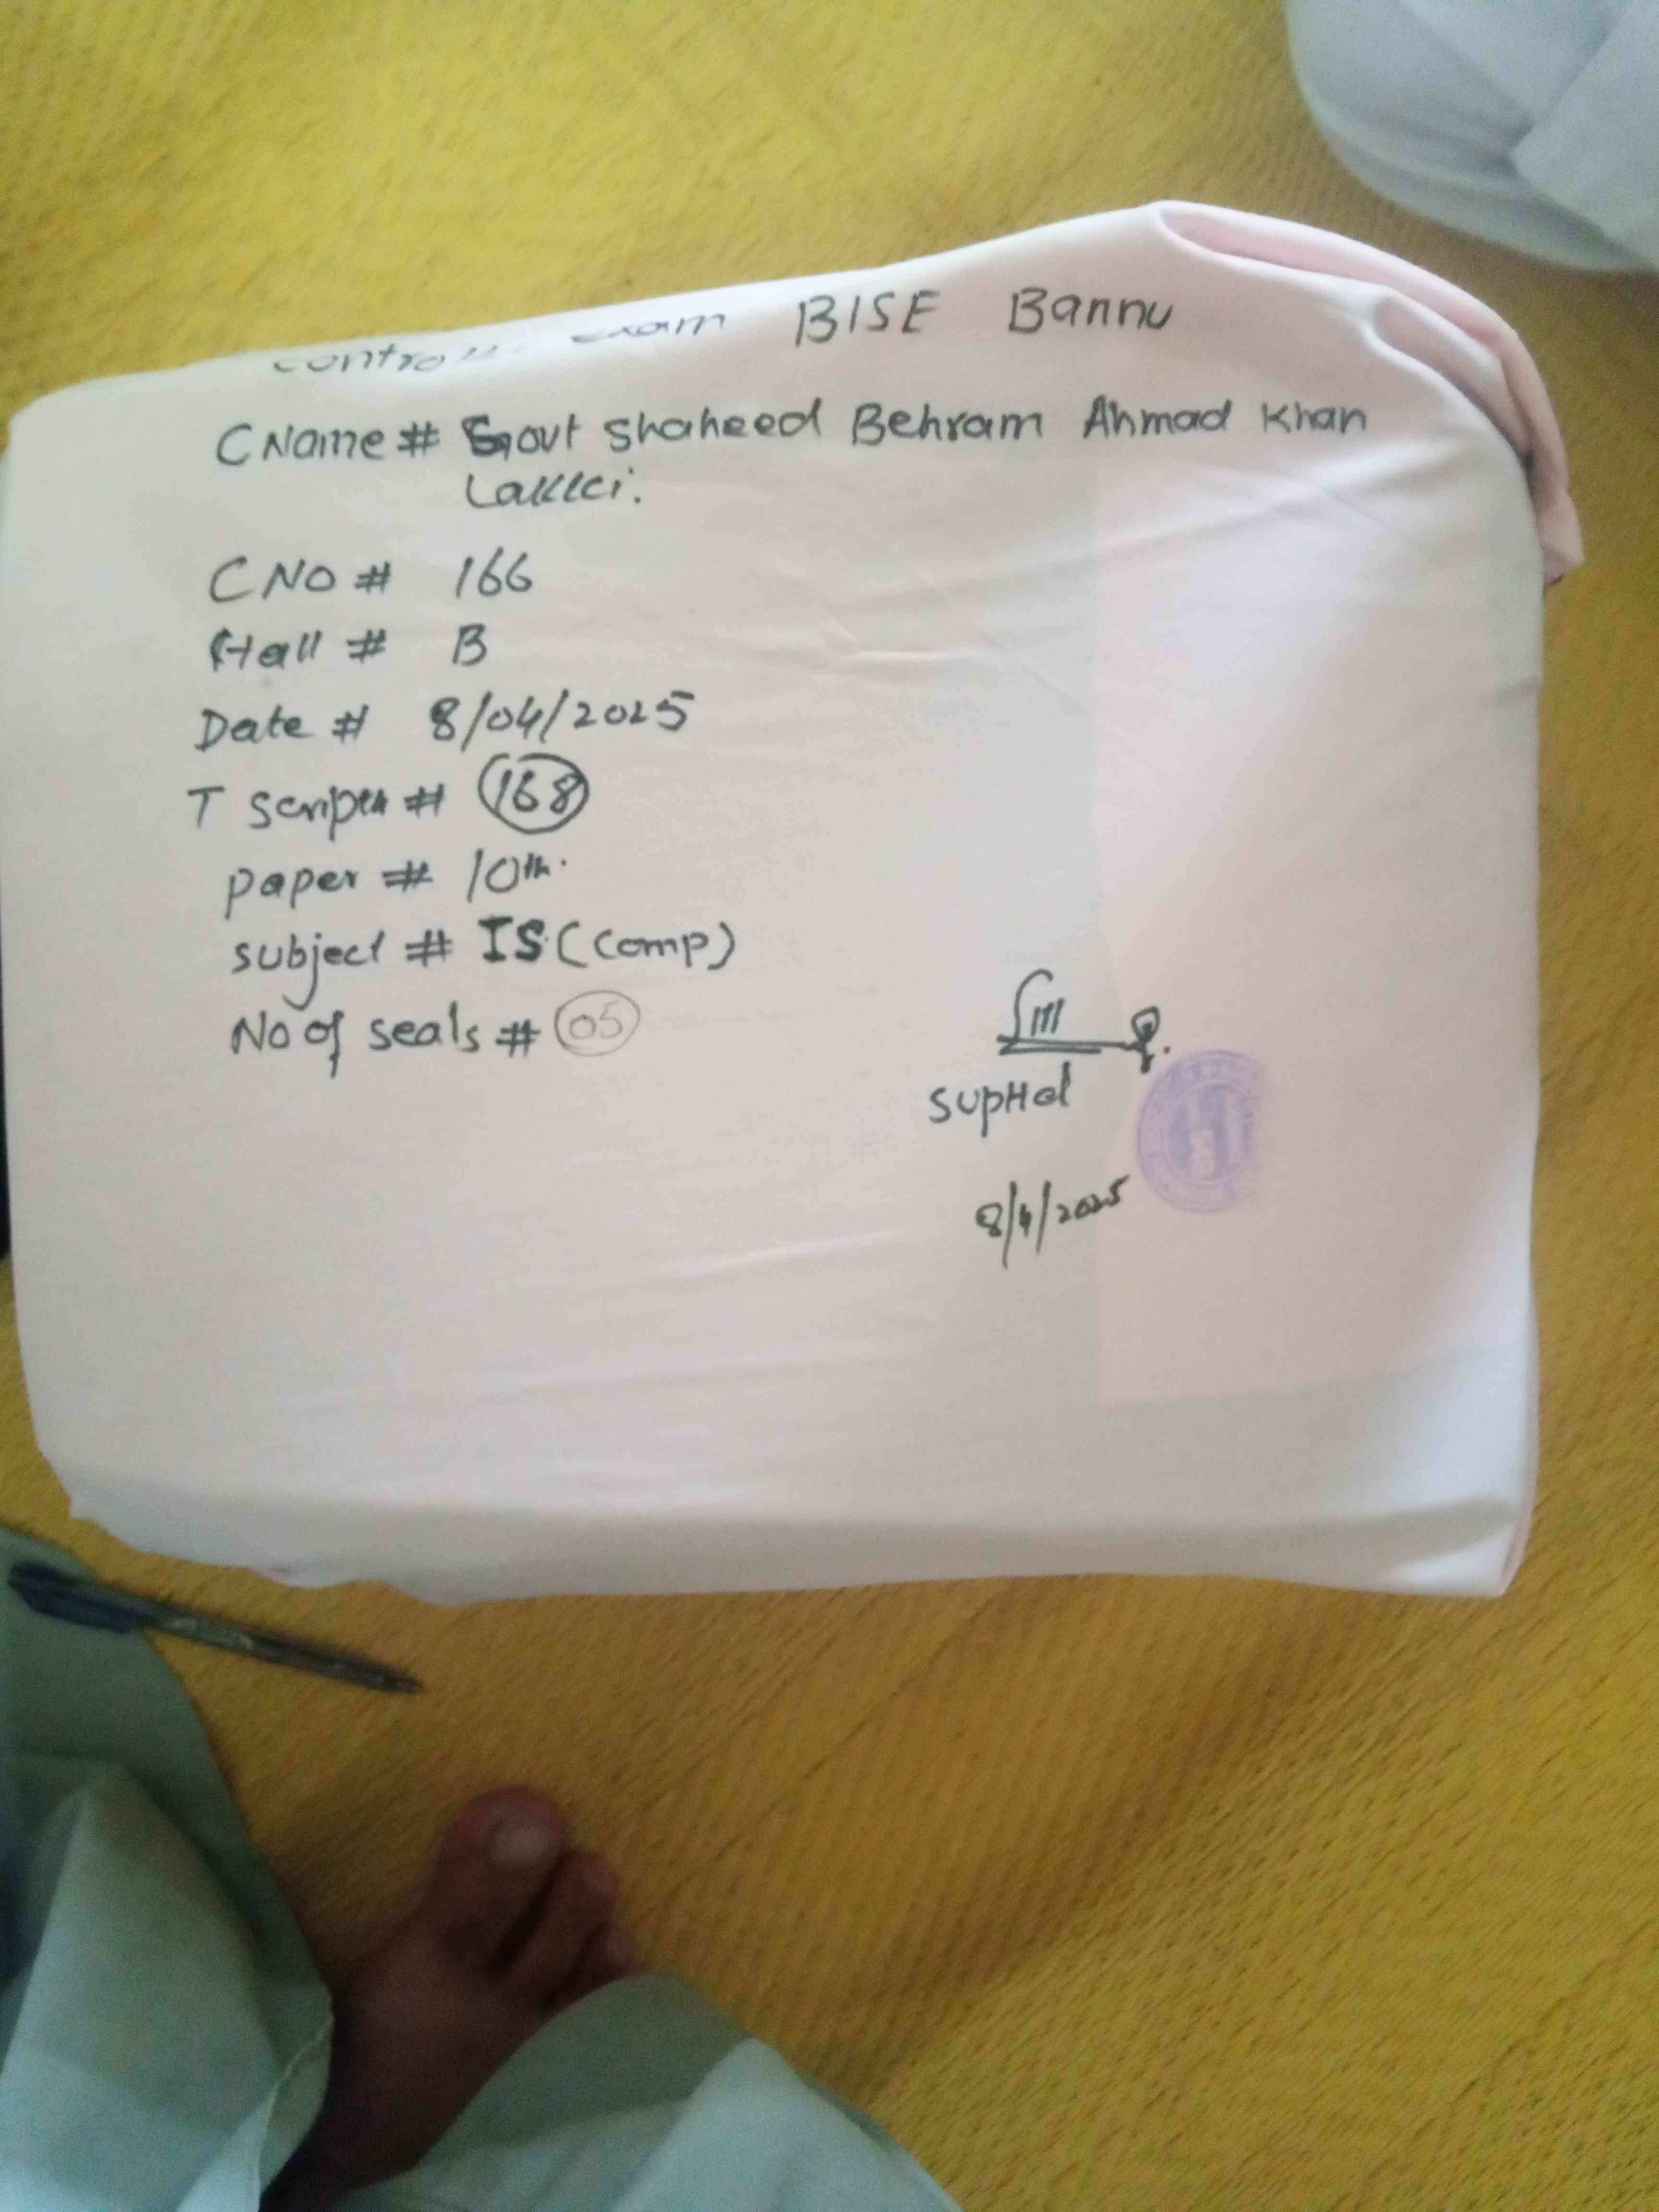 exam BISE Bannu
C Name # Govt Shaheed Behram Ahmad Khan
Lakki.
C NO # 166
Hall # B
Date # 8/04/2025
T scripts # 168
paper # 10th.
subject # IS (Comp)
No of seals # 05
SupHd
8/4/2025